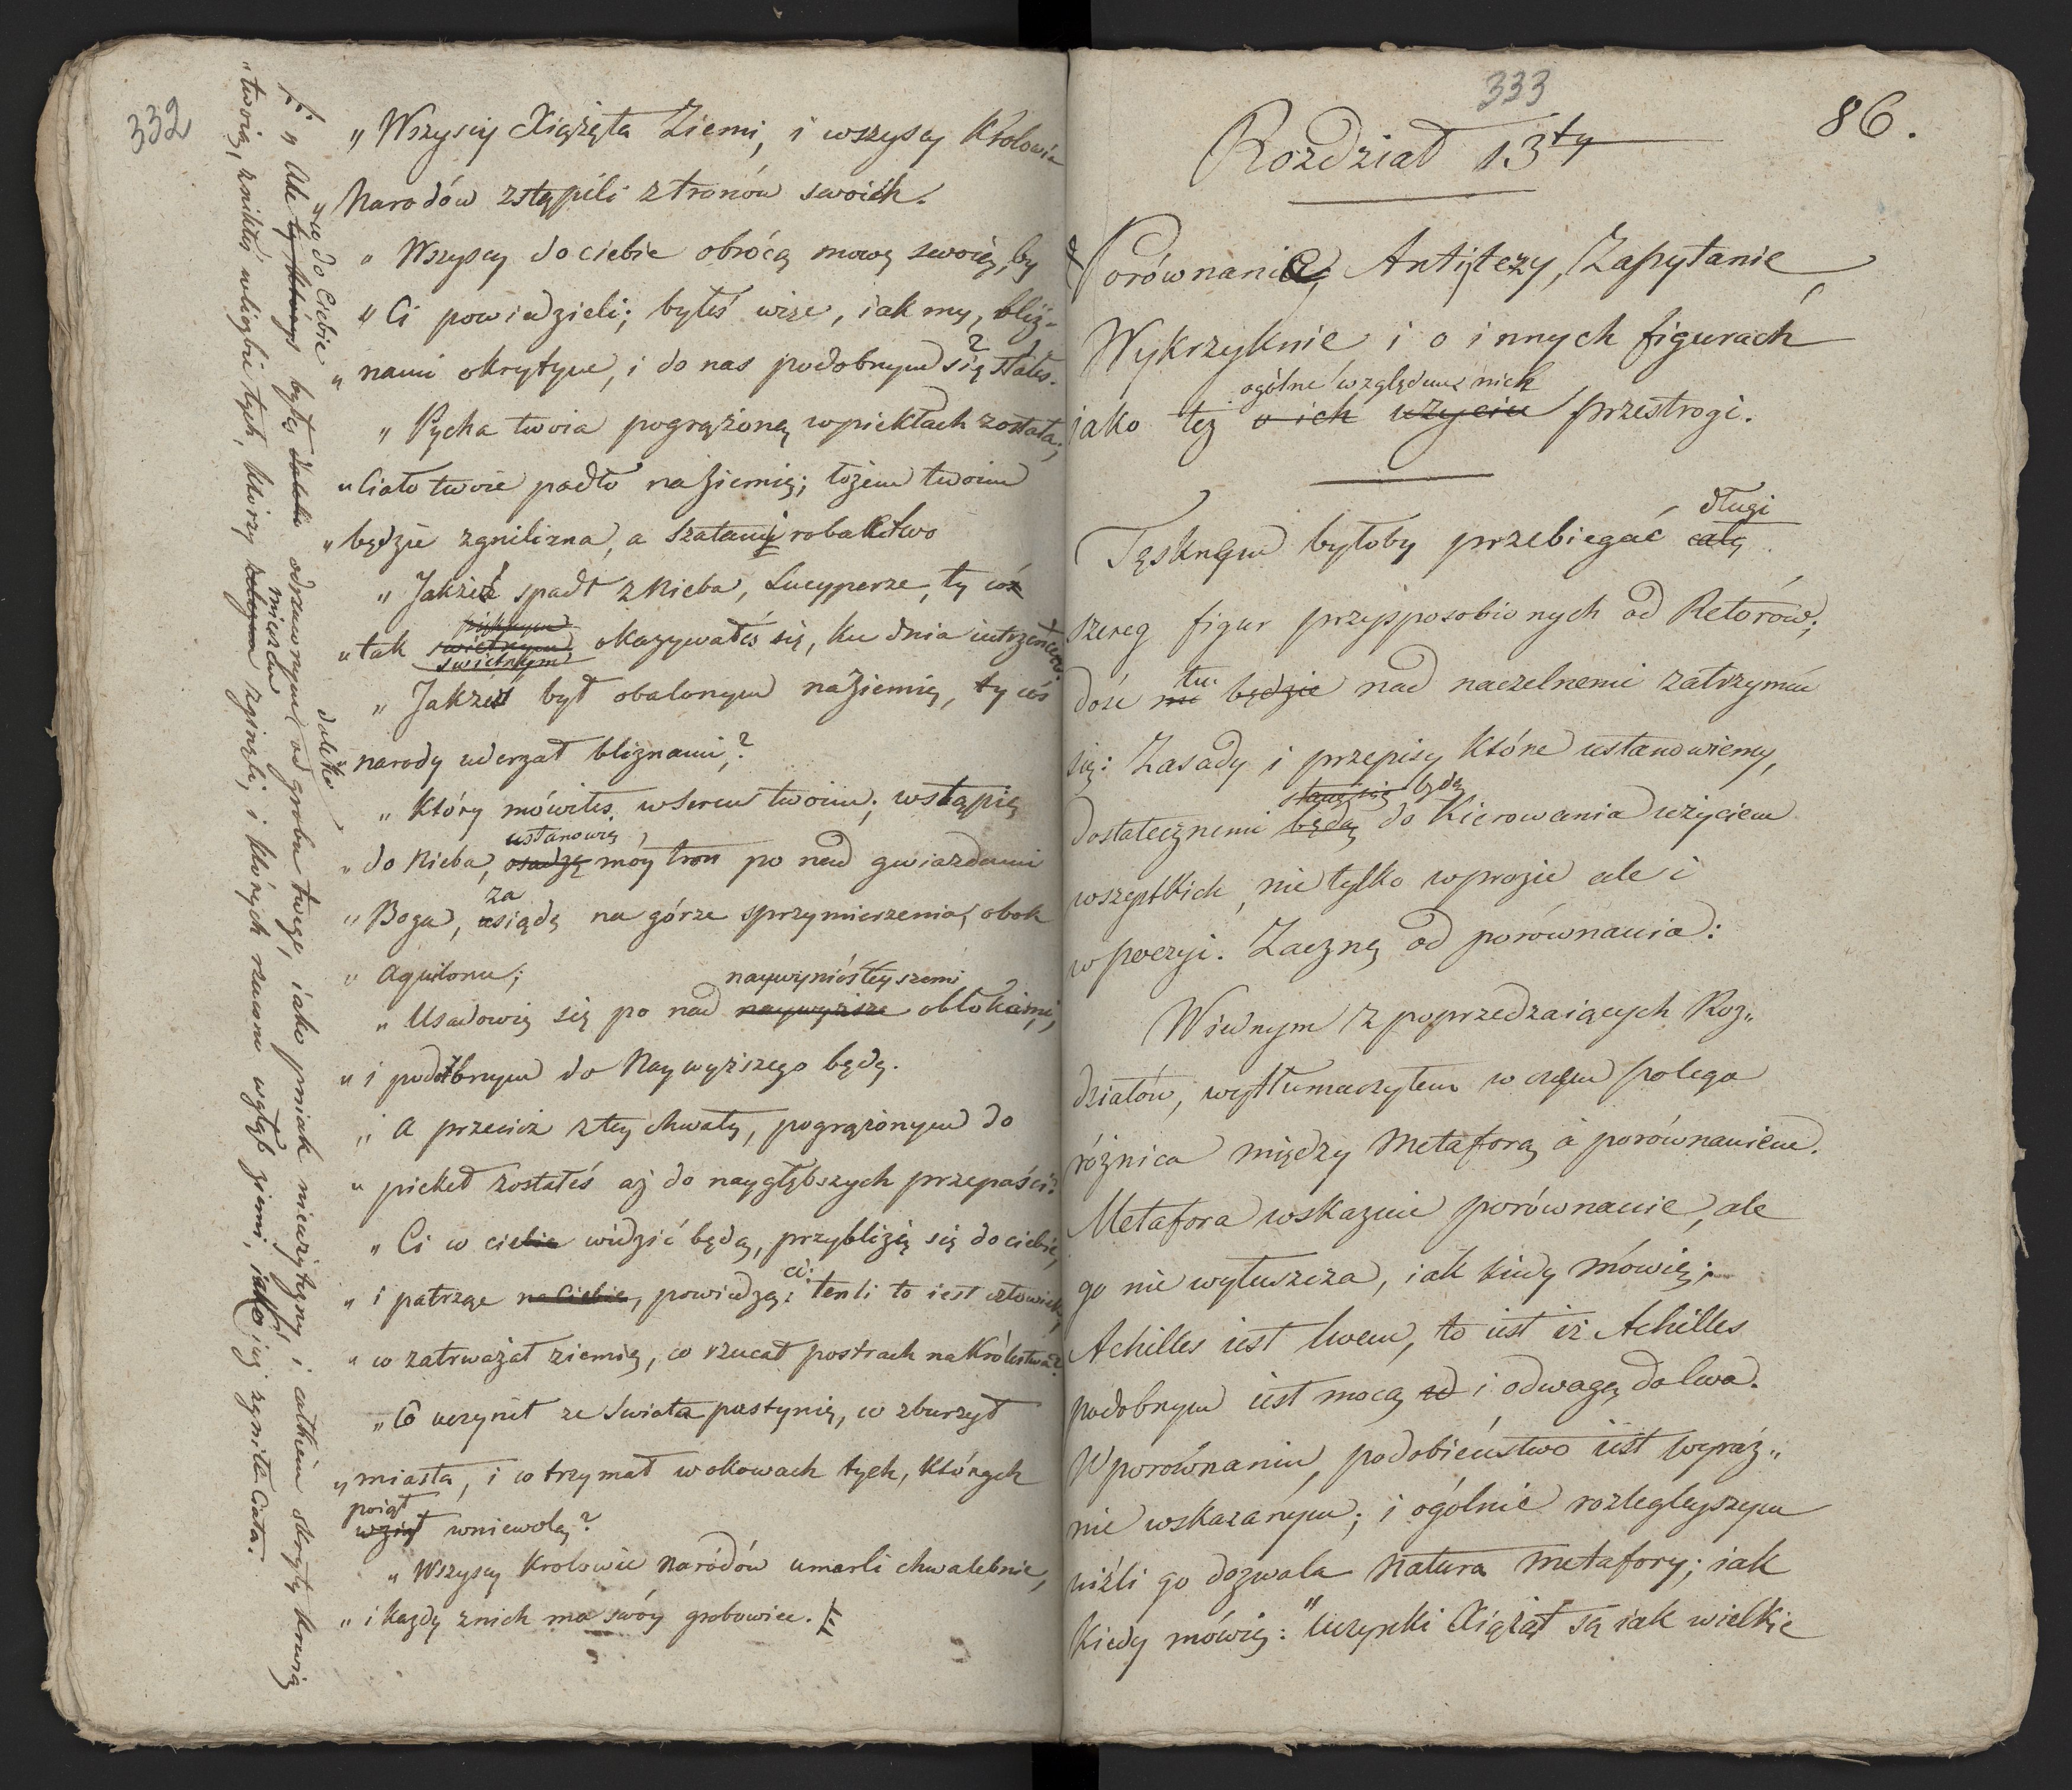 332
„ Wszyscy Xiążęta Ziemi, i wszyscy Krolowie
Narodów zstąpili z tronów swoich.
„ Wszyscy do ciebie obrócą mowę swoię, by
„ Ci powiedzieli; byłeś więc, iak my, bliz-
„ nami okrytym, i do nas podobnym się stałeś?
„ Pycha twoia pogrążoną w piekłach została;
„ Ciało twoie padło na ziemię; łożem twoim
„ będzie zgnilizna, a szatami robactwo
„ Jakżeś spadł z Nieba, Lucyperze, ty coś
pięknym
„ tak świetnym okazywałeś się, ku dnia iutrzence.
świetnym
„ Jakżeś był obalonym na ziemię, ty coś
narody uderzał bliznami?
„ Który mówiłeś w Sercu twoim; wstąpię
ustanowię
„ do Nieba, osadzę moy tron po nad gwiazdami
za
„ Boga, usiądę na górze sprzymierzenia, obok
„ Aquilonu;
naywyniosłeyszemi
„ Usadowię się po nad naywyższe obłokami,
„ i podobnym do Naywyższego będę.
„ A przecież z tey chwały, pogrążonym do
„ piekeł zostałeś aż do naygłębszych przepaści.
„ Ci co ciebie widzić będą, przybliżą się do ciebie,
ci:
„ i patrząc na Ciebie, powiedzą: tenli to iest człowiek,
„ co zatrważał ziemię, co rzucał postrach na Królestwa?
„ Co uczynił ze Swiata pustynię, co zburzył
„ miasta, i co trzymał w okowach tych, których
poiął
wziął w niewolę?
„ Wszyscy Krolowie narodów umarli chwalebnie,
„ i każdy z nich ma swóy grobowiec.
„ Ale ty którego byłeś daleko odrzuconym od grobu twego, iako pniak nieużyteczny i całkiem okryty krwią
„ co do Ciebie
daleko
„ twoią, znikłeś w liczbie tych, którzy żelazem zginęli, i których rzucono w głąb ziemi, iako iuż zgniłe Ciała.
mieczem
333
86.
Rozdział 13ty
Porównanie, Antitezy, Zapytanie,
Wykrzyknie i o innych figurach
ogólne względem nich
jako też o ich użyciu przestrogi.
długi
Tęsknem byłoby przebiegać całą
szereg figur przysposobionych od Retorów;
tu
dość będzie nad naczelnemi zatrzymać
się: Zasady i przepisy które ustanowiemy,
staną się będą
dostatecznemi będą do kierowania użyciem
wszystkich, nie tylko w prozie ale i
w poezyi. Zacznę od porównania:
W iednym z poprzedzaiących Roz„
działów, wytłumaczyłem w czem polega
różnica między Metaforą à porównaniem.
Metafora wskazuie porównanie, ale
go nie wyłuszcza, iak kiedy mówię;
Achilles iest lwem, to iest iż Achilles
podobnym iest mocą i odwagą do lwa.
W porównaniu podobieństwo iest wyraź„
nie wskazanym; i ogólnie rozlegleyszym
niżli go dozwala natura metafory; iak
kiedy mówię: "Uczynki Xiążąt są iak wielkie